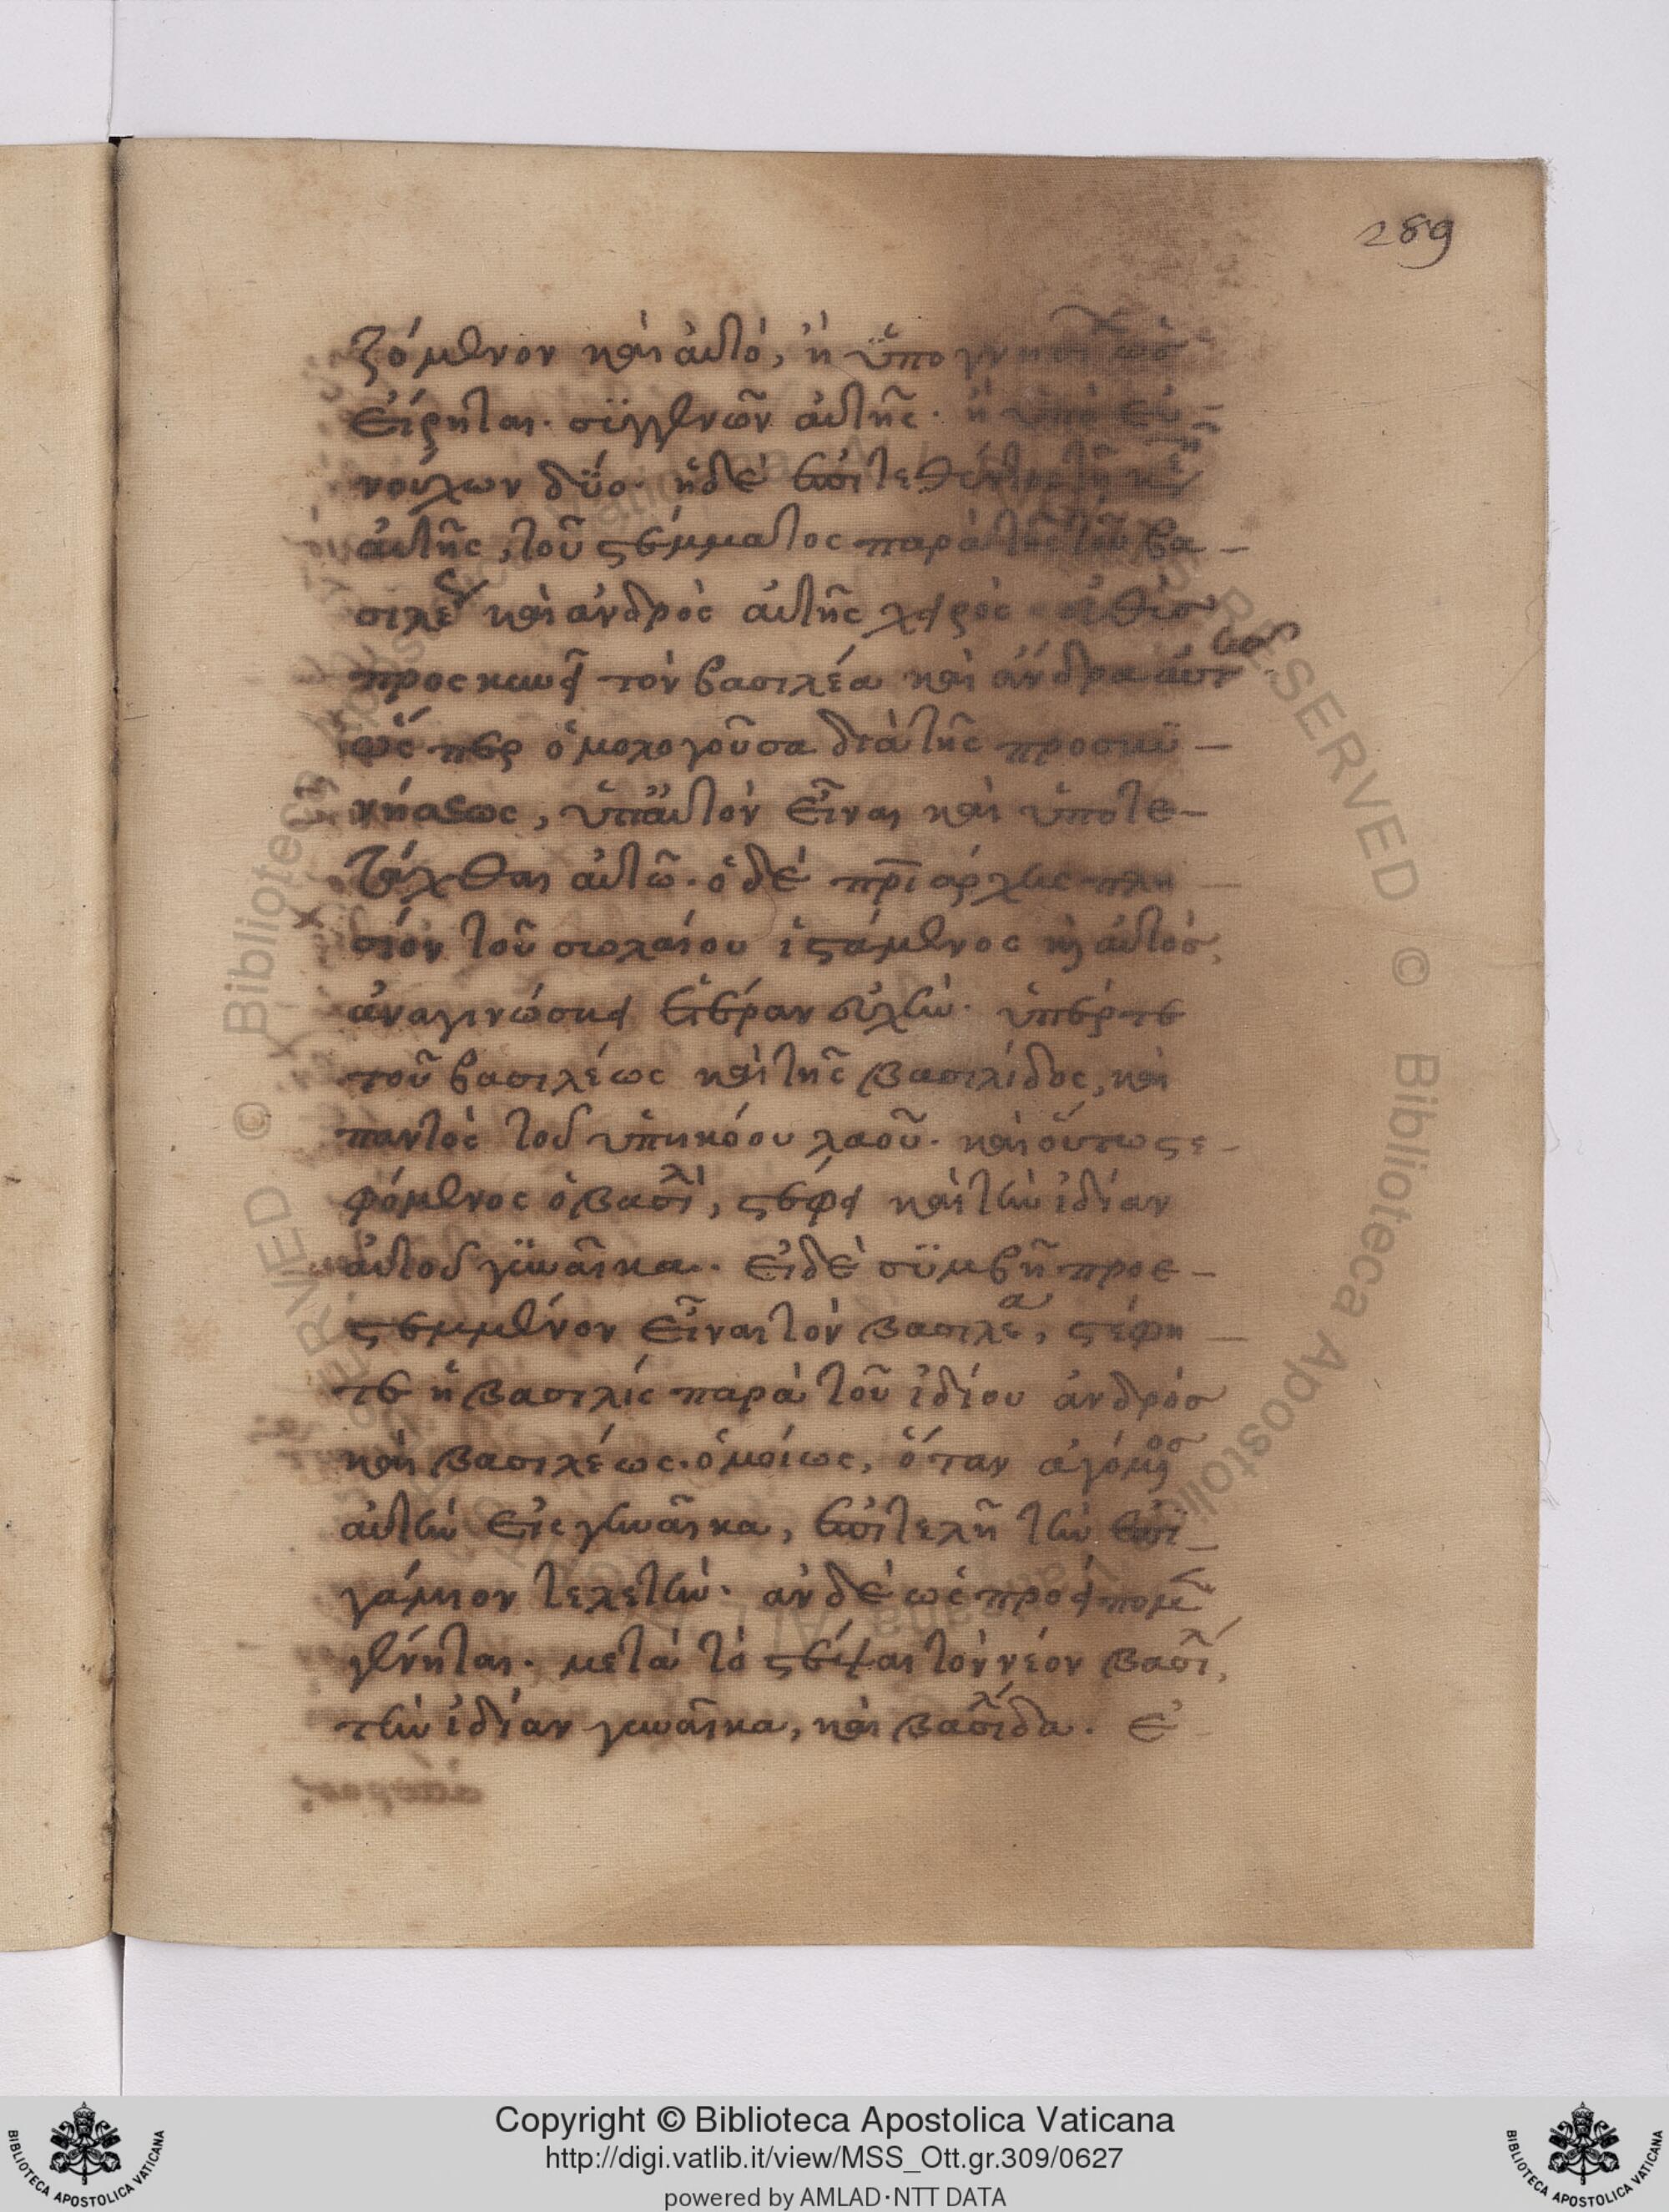 289
ζόμενον καὶ αὐτό, ἢ ὑπὸ γνησί ὡς
εἴρηται. συγγενῶν αὐτῆς. ἢ ὑπὸ εὐ-
νούχων δύο. ἡ δὲ ἐπιτεθέντος τῇ κε
αὐτῆς, τοῦ στέμματος παρὰ τῆς τοῦ βα-
σιλέως καὶ ἀνδρὸς αὐτῆς χειρὸς εὐθὺς
προσκυνεῖ τὸν βασιλέα καὶ ἄνδρα αὐτῆς
ὥσπερ ὁμολογοῦσα διὰ τῆς προσκυ-
νήσεως, ὑπ' αὐτὸν εἶναι καὶ ὑποτε-
τάχθαι αὐτῶ. ὁ δὲ πριάρχης πλη-
σίον τοῦ σωλαίου ἱστάμενος καὶ αὐτὸς,
ἀναγινώσκει ἑτέραν εὐχὴν. ὑπέρ τε
τοῦ βασιλέως καὶ τῆς βασιλίδος, καὶ
παντὸς τοῦ ὑπηκόου λαοῦ. καὶ οὕτω στε-
φόμενος ὁ βασιλ, στέφει καὶ τὴν ἰδίαν
αὐτοῦ γυναῖκα. εἰ δὲ συμβῆ προε-
στεμμένον εἶναι τὸν βασιλέα, στέφη-
τε ἡ βασιλὶς παρὰ τοῦ ἰδίου ἀνδρὸς
καὶ βασιλέως. ὁμοίως, ὅταν ἀγόμενος
αὐτὴν εἰς γυναῖκα, ἐπιτελῆ τὴν ἐπι-
γάμιον τελετὴν. ἂν δὲ ὡς προείπομεν
γένηται. μετὰ τὸ στέψαι τὸν νέον βασιλ,
τὴν ἰδίαν γυναῖκα, καὶ βασιλίδα. ἐ-
Copyright © Biblioteca Apostolica Vaticana
http://digi.vatlib.it/view/MSS_Ott.gr.309/0627
powered by AMLAD·NTT DATA
BIBLIOTECA APOSTOLICA VATICANA
BIBLIOTECA APOSTOLICA VATICANA